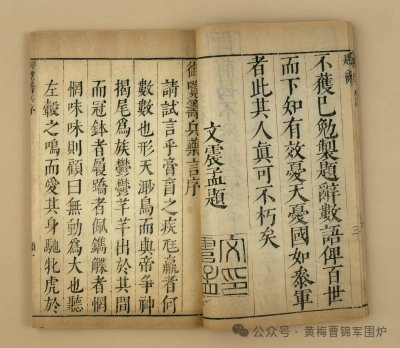 不獲已勉製題辭數語俾百世
而下知有效憂天憂國如叅軍
者此其人真可不朽矣
文震孟題
御覽籌兵藥言序
請試言乎膏肓之疾尪羸者何
數數也形天溺鳥而與帝爭神
揭尾為族鬱鬱芊芊出於其間
而冠鉢者履蹻者佩觿者惘
惘味味則顧曰無動為大也聽
左轂之鳴而愛其身馳牝虎於
公众号 · 黄梅曹锦军围炉